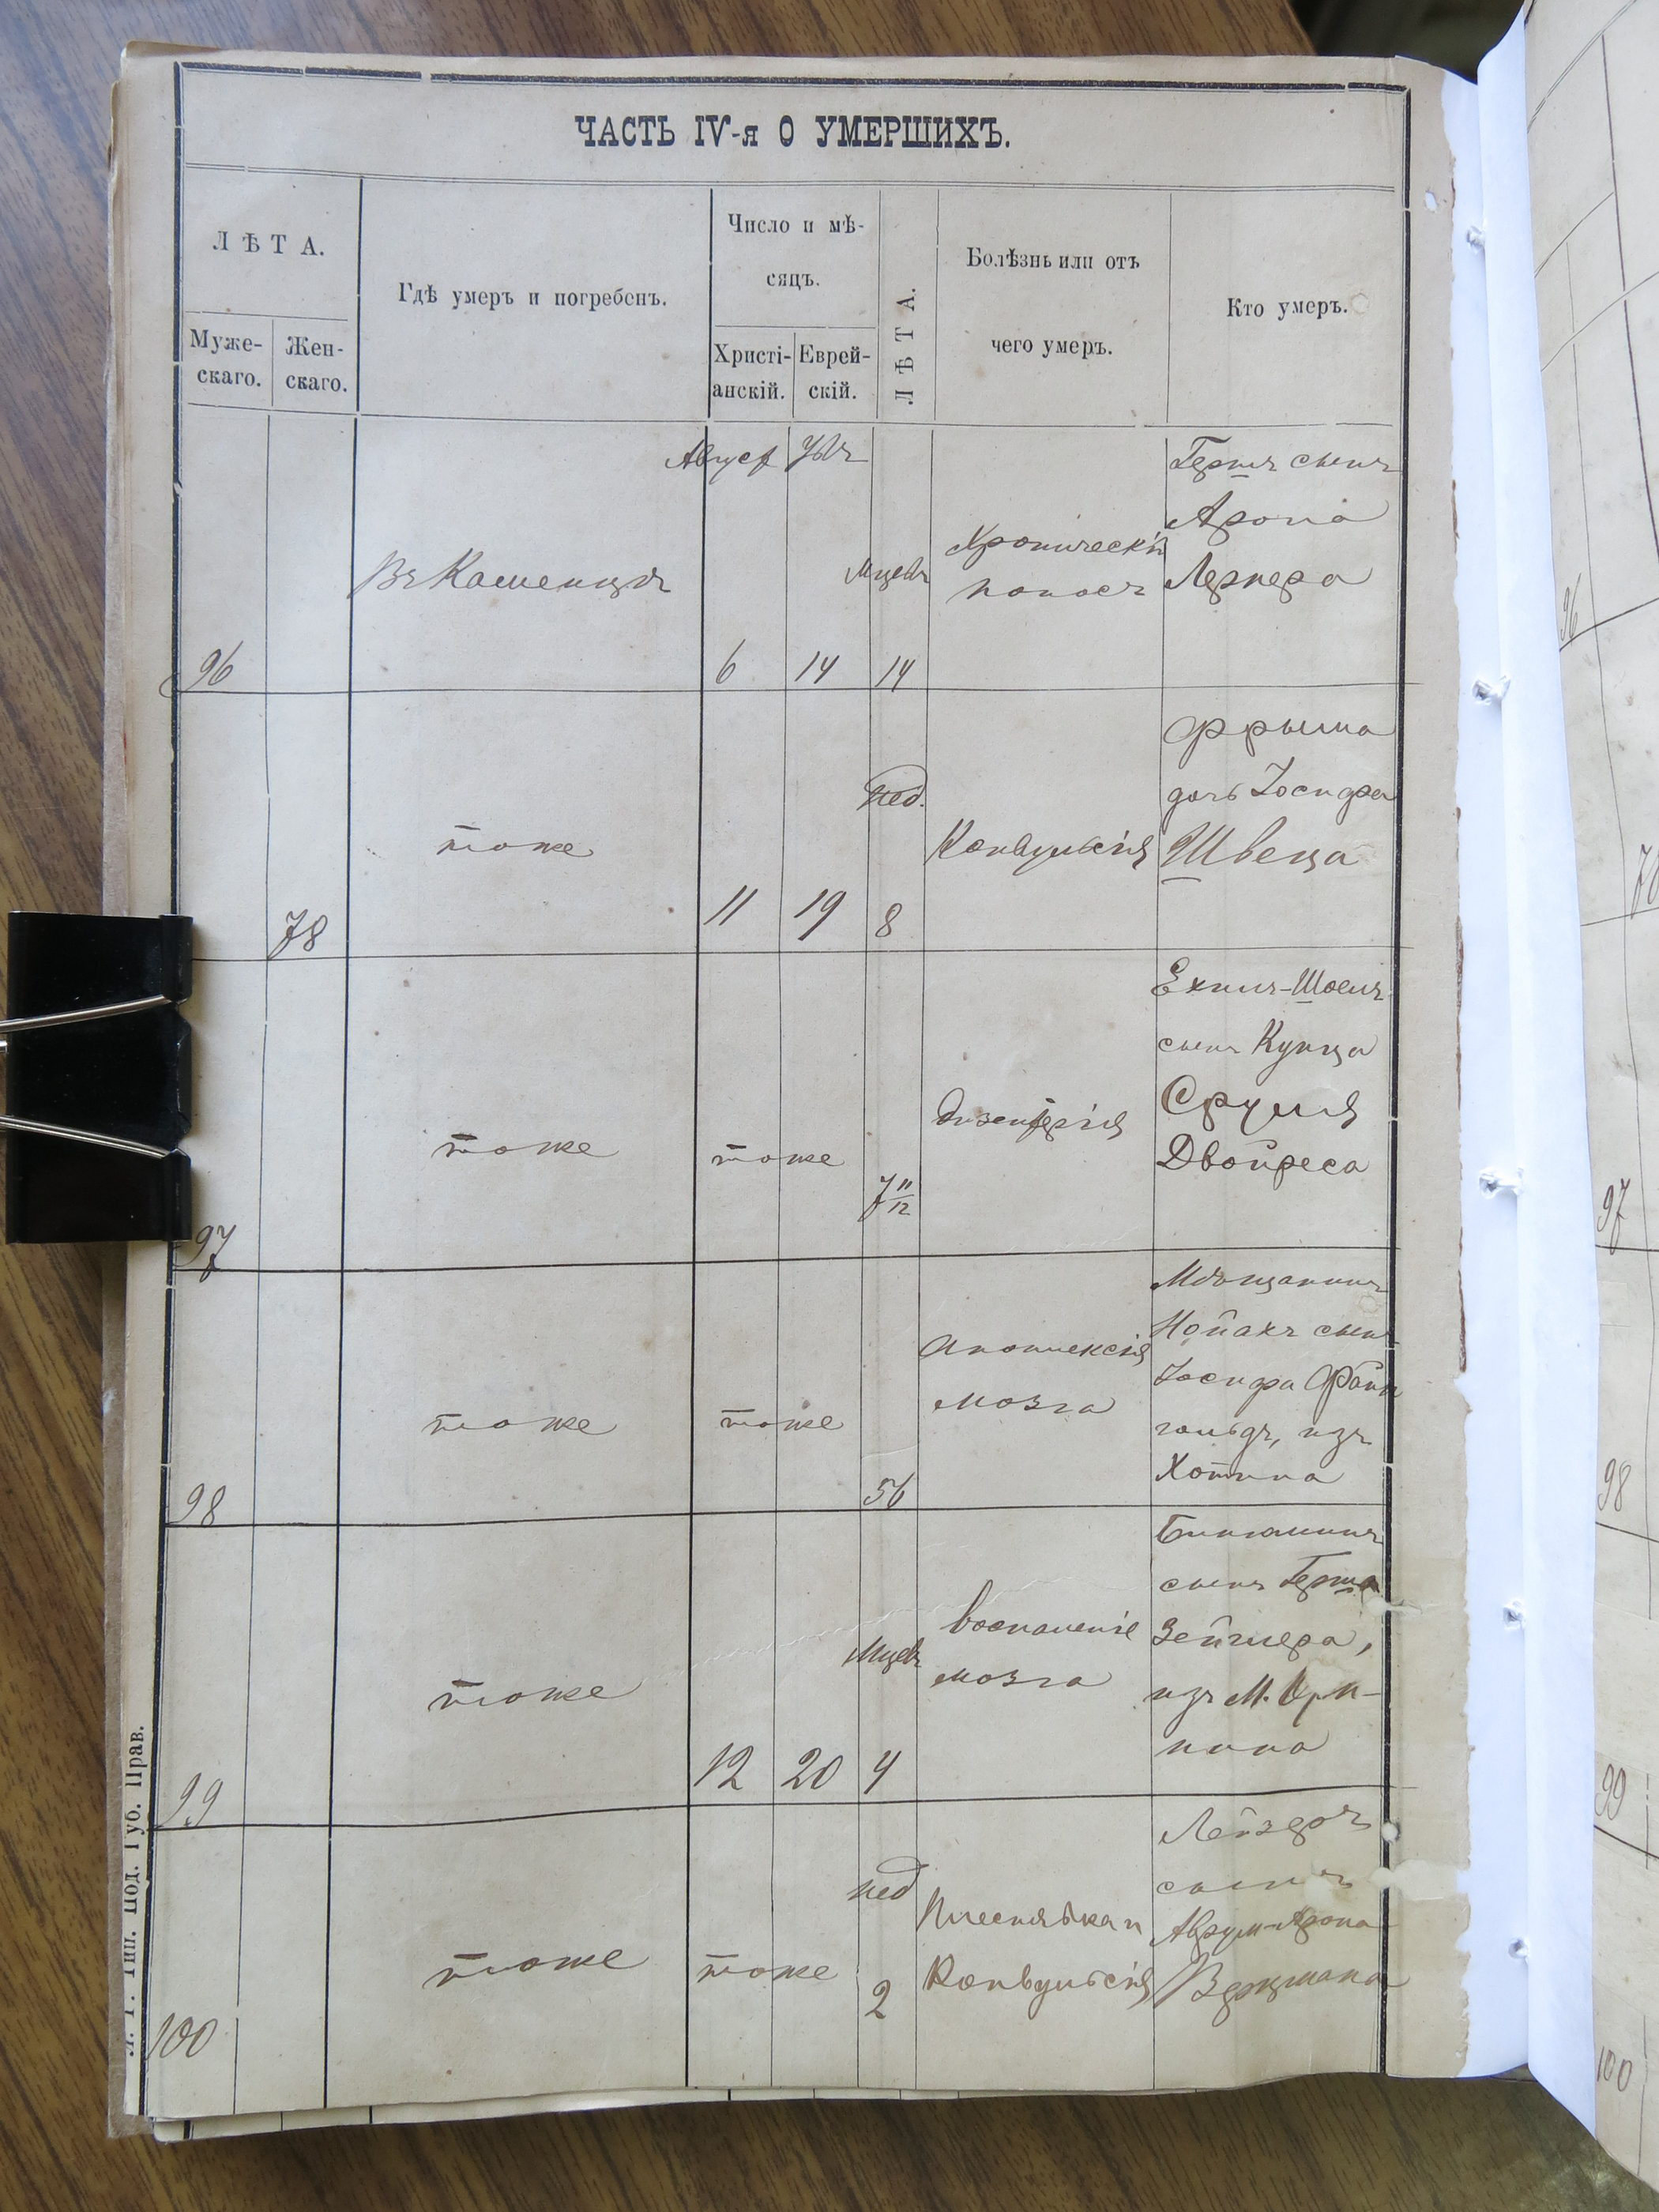 ЧАСТЬ IV-я О УМЕРШИХЪ.
ЛѢТА.
Муже-
скаго.
Жен-
скаго.
Гдѣ умеръ и погребенъ.
Число и мѣ-
сяцъ.
Христі-
анскій.
Еврей-
скій.
ЛѢТА.
Болѣзнь или отъ
чего умеръ.
Кто умеръ.
96
Въ Каменцѣ
Август
6
14
14
Хроническій
поносъ
Гершъ сынъ
Арона
Лернера
78
тоже
11
19
нед.
8
Конвульсія
Фрыма
дочь Іосифа
Швеца
97
тоже
тоже
7 11/12
дизентерія
Ехиль-Шоель
сынъ Купца
Сруля
Двойреса
98
тоже
тоже
56
Апоплексія
мозга
Мѣщанинъ
Нойахъ сынъ
Іосифа Файн
гольдъ, изъ
Хотина
99
тоже
12
20
Мцевъ
4
воспаленіе
мозга
Биньюминъ
сынъ Герша
Зейгмера,
изъ М.
100
тоже
тоже
нед
2
Плеснявка и
Конвульсія
Лейзоръ
сынъ
Аврум-Арона
Вержмана
96
78
97
98
99
100
Л. Г. Тип. Под. Губ. Прав.